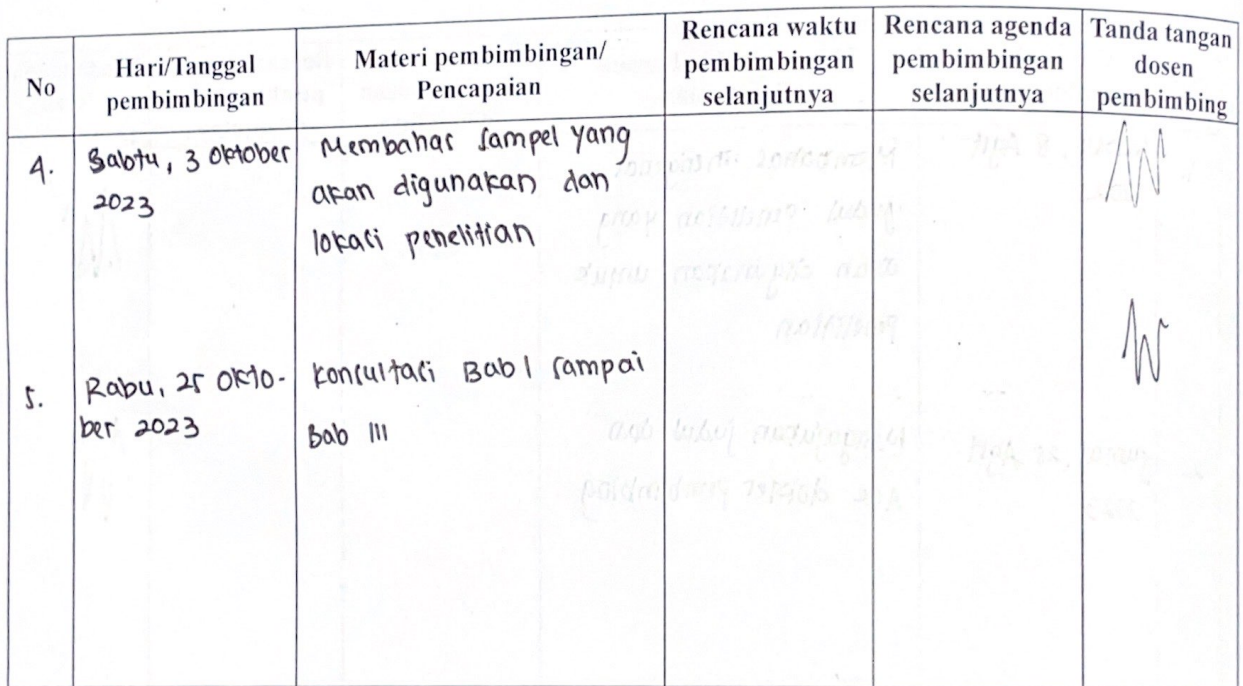 No
Hari/Tanggal
pembimbingan
Materi pembimbingan/
Pencapaian
Rencana waktu
pembimbingan
selanjutnya
Rencana agenda
pembimbingan
selanjutnya
Tanda tangan
dosen
pembimbing
4.
Sabtu, 3 Oktober
2023
Membahas sampel yang
akan digunakan dan
lokasi penelitian
5.
Rabu, 25 Okto-
ber 2023
konsultasi Bab I sampai
Bab III